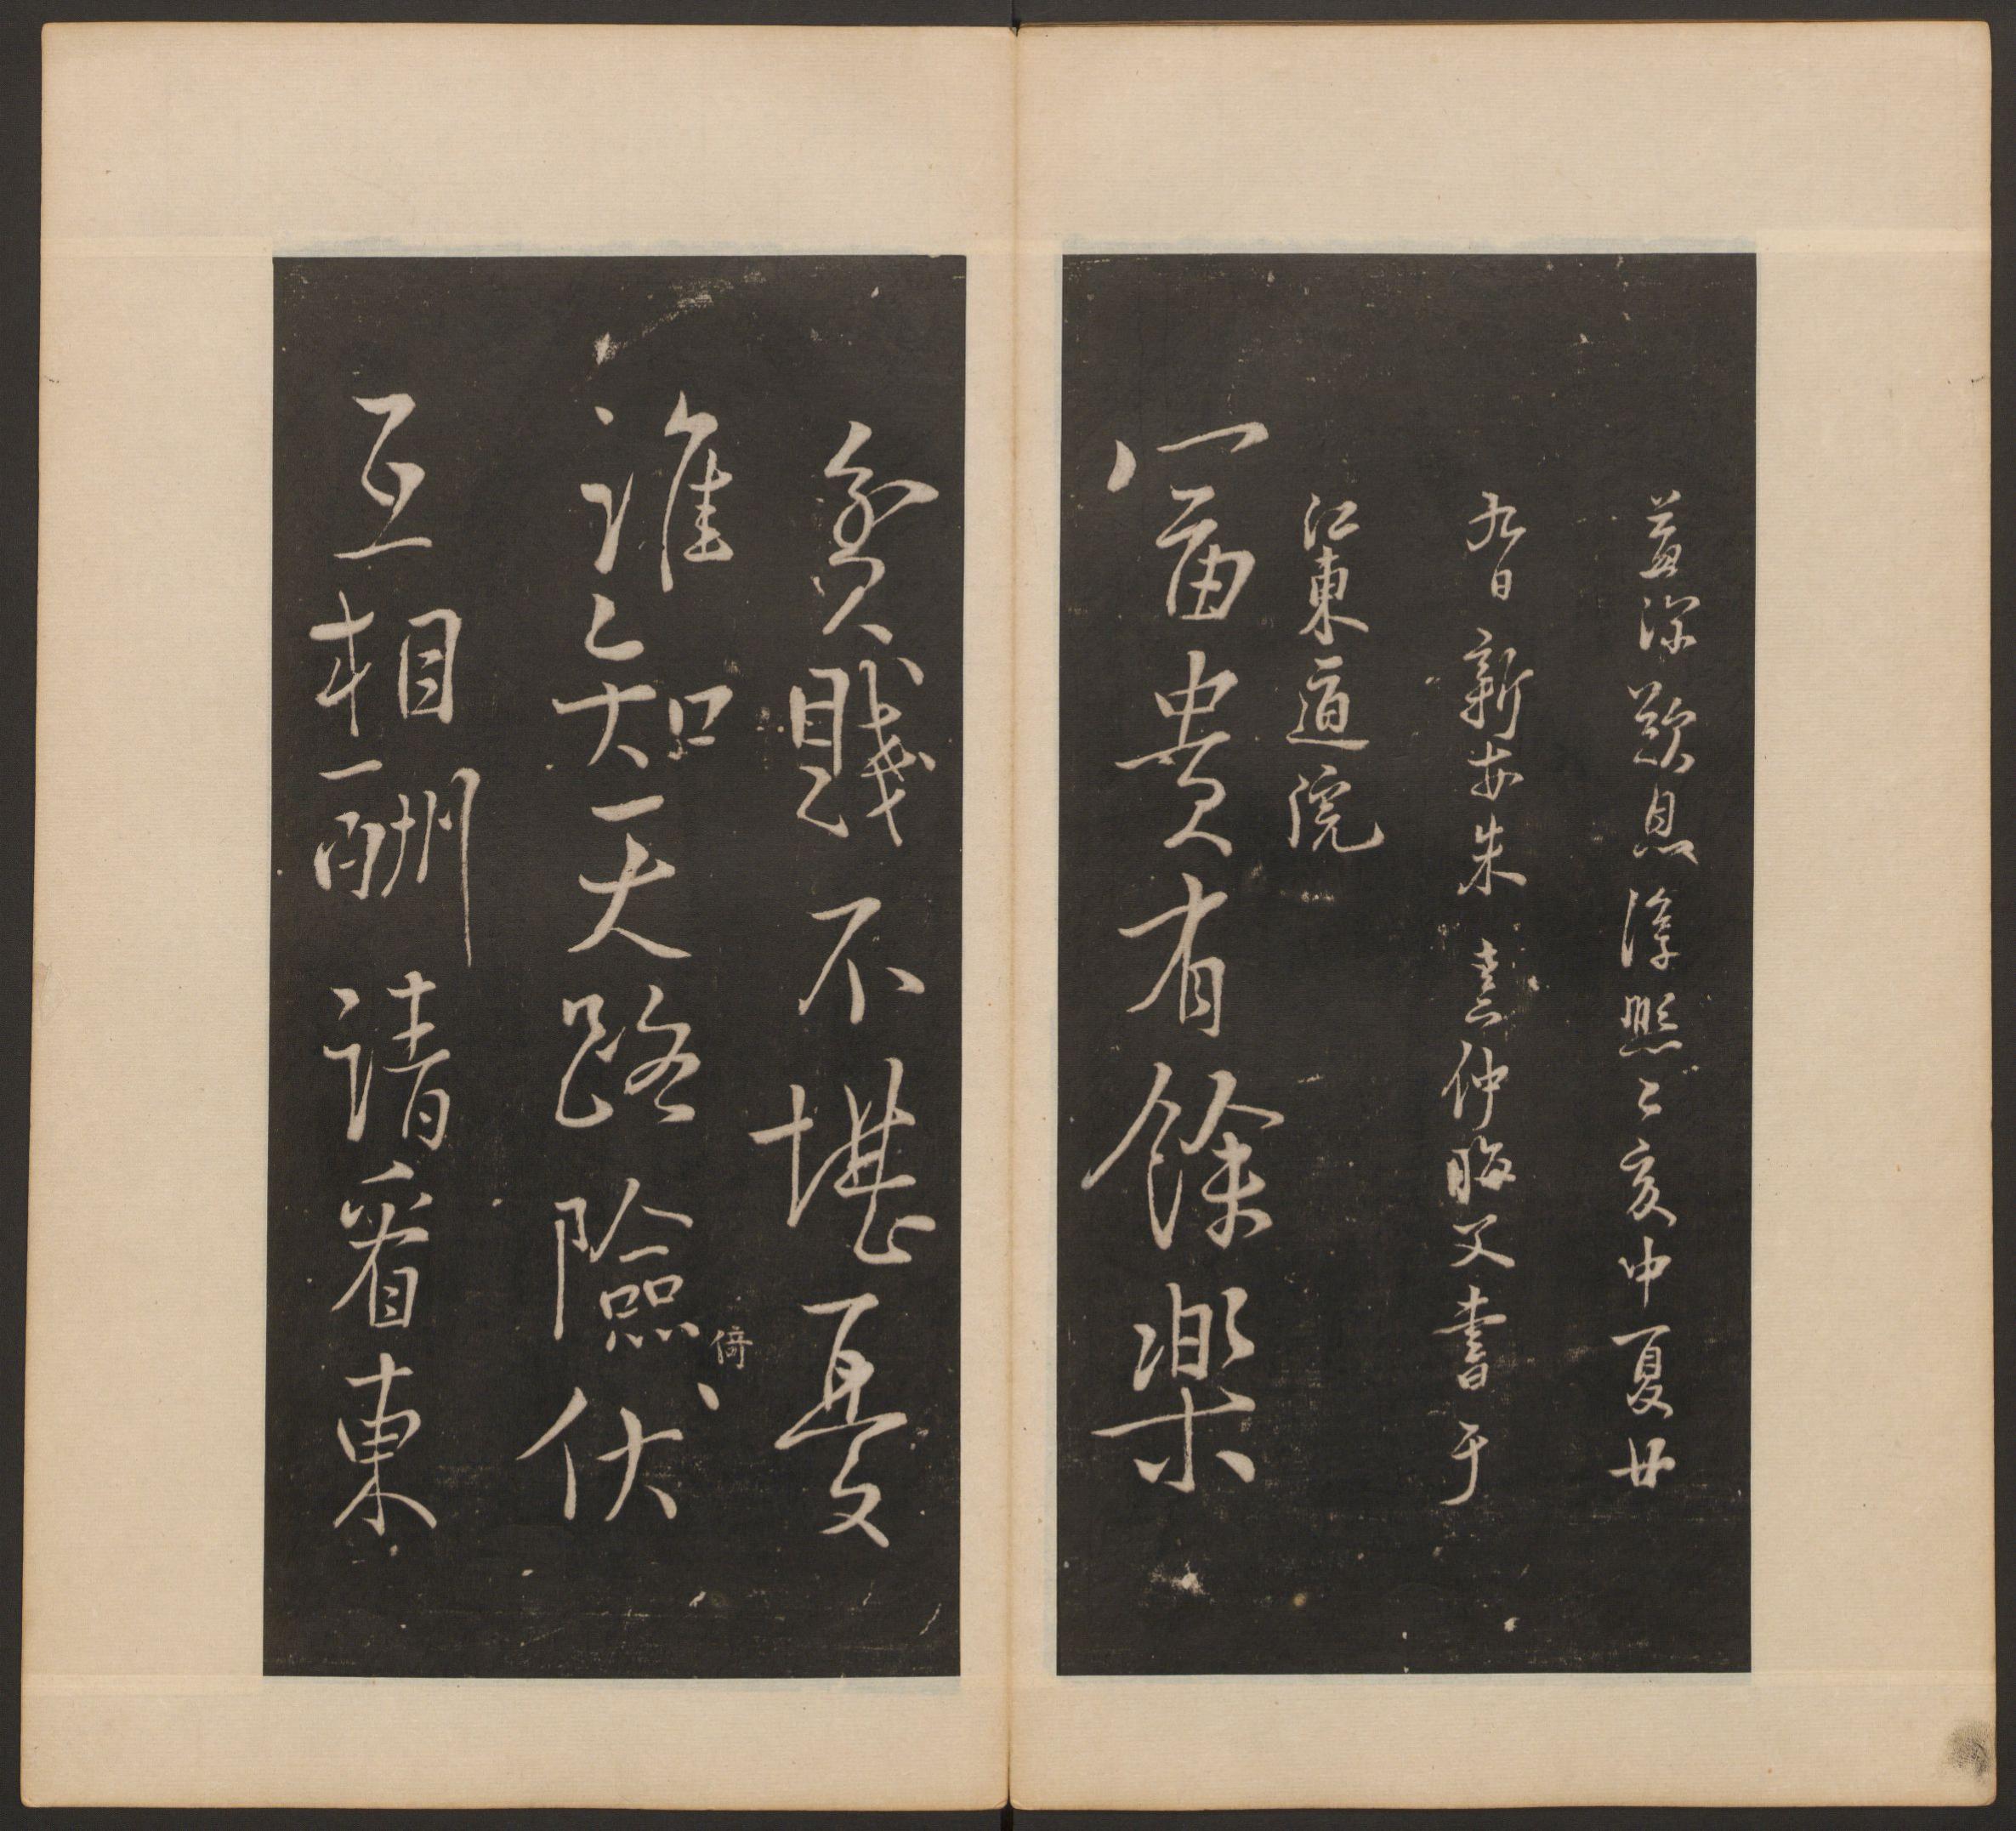 益深歎息淳熙己亥中夏廿
九日新安朱熹仲晦父書于
江東道院
富貴有餘樂
貧賤不堪憂
誰知天路險倚伏
互相酬請看東